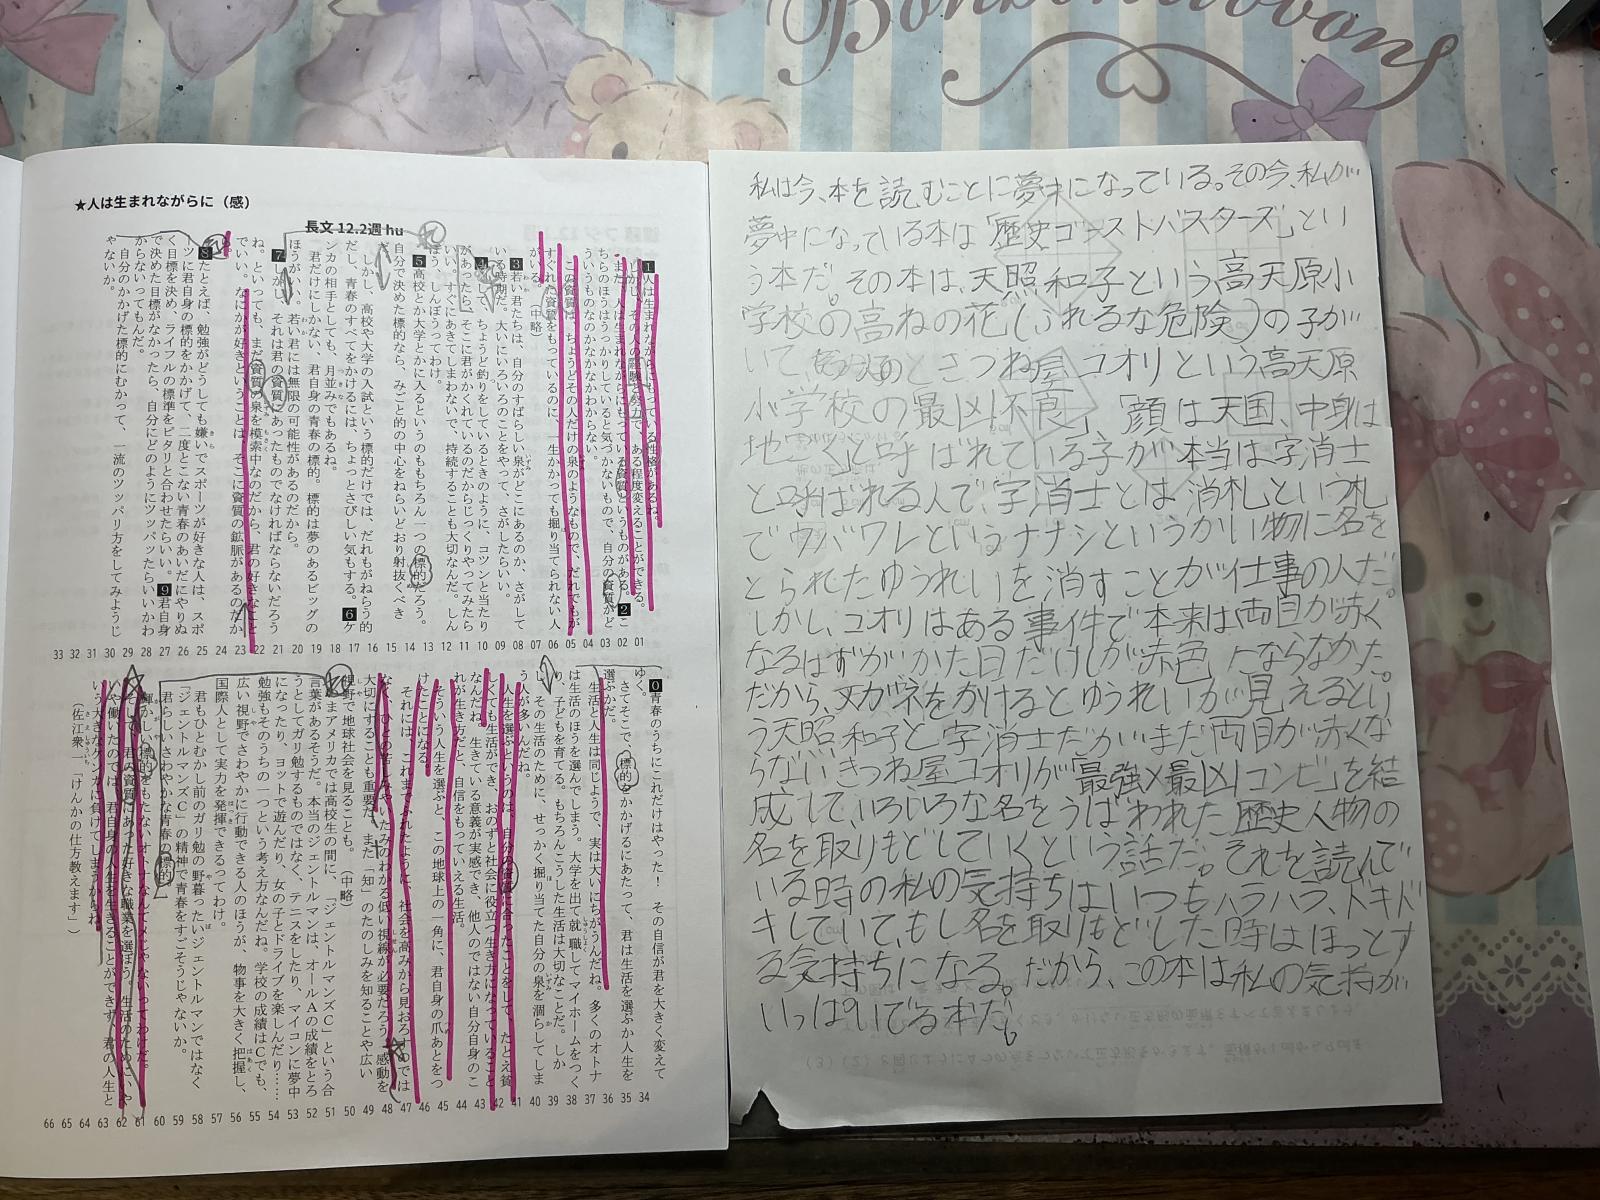 Bonbonribbons
★人は生まれながらに（感）
長文 12.2週 hu
1人は生まれながらにもっている性格があるね。
しかし、その人の経験と努力で、ある程度変えることができる。2
また、人は生まれながらにもっている資質というものがある。
ちらのほうはうっかりしていると気づかないもので、自分の資質がど
ういうものなのかなかなかわからない。
この資質は、ちょうどその人だけの泉のようなもので、だれでもが
すぐれた資質をもっているのに、一生かかっても掘り当てられない人
がいる。（中略）
3若い君たちは、自分のすばらしい泉がどこにあるのか、さがして
いる時期だ。大いにいろいろのことをやって、さがしたらいい。
4そして、ちょうど釣りをしているときのように、コツンと当たり
があったら、そこに君がかくれているのだからじっくりやってみたら
いい。すぐにあきてしまわないで、持続することも大切なんだ。しん
ぼう、しんぼうってわけ。
5高校とか大学とかに入るというのももちろん一つの標的だろう。
自分で決めた標的なら、みごと的の中心をねらいどおり射抜くべき
だ。
しかし、高校や大学の入試という標的だけでは、だれもがねらう的
だし、青春のすべてをかけるには、ちょっとさびしい気もする。6ケ
ンカの相手としても、月並みでもあるね。
君だけにしかない、君自身の青春の標的。標的は夢のあるビッグの
ほうがいい。若い君には無限の可能性があるのだから。
7しかし、それは君の資質にあったものでなければならないだろう
ね。といっても、まだ資質の泉を模索中なのだから、君の好きなこと
でいい。なにかが好きということは、そこに資質の鉱脈があるのだか
ら。
8たとえば、勉強がどうしても嫌いでスポーツが好きな人は、スポ
ーツに君自身の標的をかかげて、二度とこない青春のあいだにやりぬ
く目標を決め、ライフルの標準をピタリと合わせたらいい。9君自身
で決めた目標がなかったら、自分にどのようにツッパッたらいいかわ
からないってもんだ。
自分のかかげた標的にむかって、一流のツッパリ方をしてみようじ
ゃないか。
33 32 31 30 29 28 27 26 25 24 23 22 21 20 19 18 17 16 15 14 13 12 11 10 09 08 07 06 05 04 03 02 01
0青春のうちにこれだけはやった！ その自信が君を大きく変えて
ゆく。
さてそこで、標的をかかげるにあたって、君は生活を選ぶか人生を
選ぶかだ。
生活と人生は同じようで、実は大いにちがうんだね。多くのオトナ
は生活のほうを選んでしまう。大学を出て就職してマイホームをつく
り、子どもを育てる。もちろんこうした生活は大切なことだ。しか
し、その生活のために、せっかく掘り当てた自分の泉を涸らしてしま
う人が多いんだね。
人生を選ぶというのは、自分の資質に合ったことをして、たとえ貧
しくても生活ができ、おのずと社会に役立つ生き方になっていること
なんだね。生きている意義が実感でき、他人のではない自分自身のこ
れが生き方だと、自信をもっていえる生活。
そういう人生を選ぶと、この地球上の一角に、君自身の爪あとをつ
けたことになる。
それには、これまでふれたように、社会を高みから見おろすのでは
なく、ひとの苦しみやいたみのわかる低い視線が必要だろう。感動を
大切にすることも重要だ。また「知」のたのしみを知ることや広い
視野で地球社会を見ることも。（中略）
いまアメリカでは高校生の間に、「ジェントルマンズＣ」という合
言葉があるそうだ。本当のジェントルマンは、オールＡの成績をとろ
うとしてガリ勉するものではなく、テニスをしたり、マイコンに夢中
になったり、ヨットで遊んだり、女の子とドライブを楽しんだり……
勉強もそのうちの一つという考え方なんだね。学校の成績はＣでも、
広い視野でさわやかに行動できる人のほうが、物事を大きく把握し、
国際人として実力を発揮できるってわけ。
君もひとむかし前のガリ勉の野暮ったいジェントルマンではなく
「ジェントルマンズＣ」の精神で青春をすごそうじゃないか。
君らしいさわやかな青春の標的。
輝かしい標的をもたないオトナなんてメじゃないってわけだ。
そして、君の資質にあった好きな職業を選ぼう。生活のためにいや
いや働いたのでは、君自身の人生を生きることができず、君の人生と
いう大きなケンカに負けてしまうからね。
（佐江衆一「けんかの仕方教えます」）
66 65 64 63 62 61 60 59 58 57 56 55 54 53 52 51 50 49 48 47 46 45 44 43 42 41 40 39 38 37 36 35 34
私は今、本を読むことに夢中になっている。その今、私が
夢中になっている本は「歴史ゴーストバスターズ」とい
う本だ。その本は、天照和子という高天原小
学校の高ねの花（ふれるな危険）の子が
いて きつね屋コオリという高天原
小学校の最凶不良」「顔は天国、中身は
地ごく」と呼ばれている子が本当は字消士
と呼ばれる人で、字消士とは消札という札
でウバワレというナナシというかい物に名を
とられたゆうれいを消すことが仕事の人だ。
しかし、コオリはある事件で本来は両目が赤く
なるはずがかた目だけしか赤色にならなかった。
だから、メガネをかけるとゆうれいが見えるとい
う天照和子と字消士だがまだ両目が赤くな
らないきつね屋コオリが「最強×最凶コンビ」を結
成して、いろいろな名をうばわれた歴史人物の
名を取りもどしていくという話だ。それを読んで
いる時の私の気持ちはいつもハラハラ、ドキド
キしていて、もし名を取りもどした時はほっとす
る気持ちになる。だから、この本は私の気持が
いっぱいでる本だ。